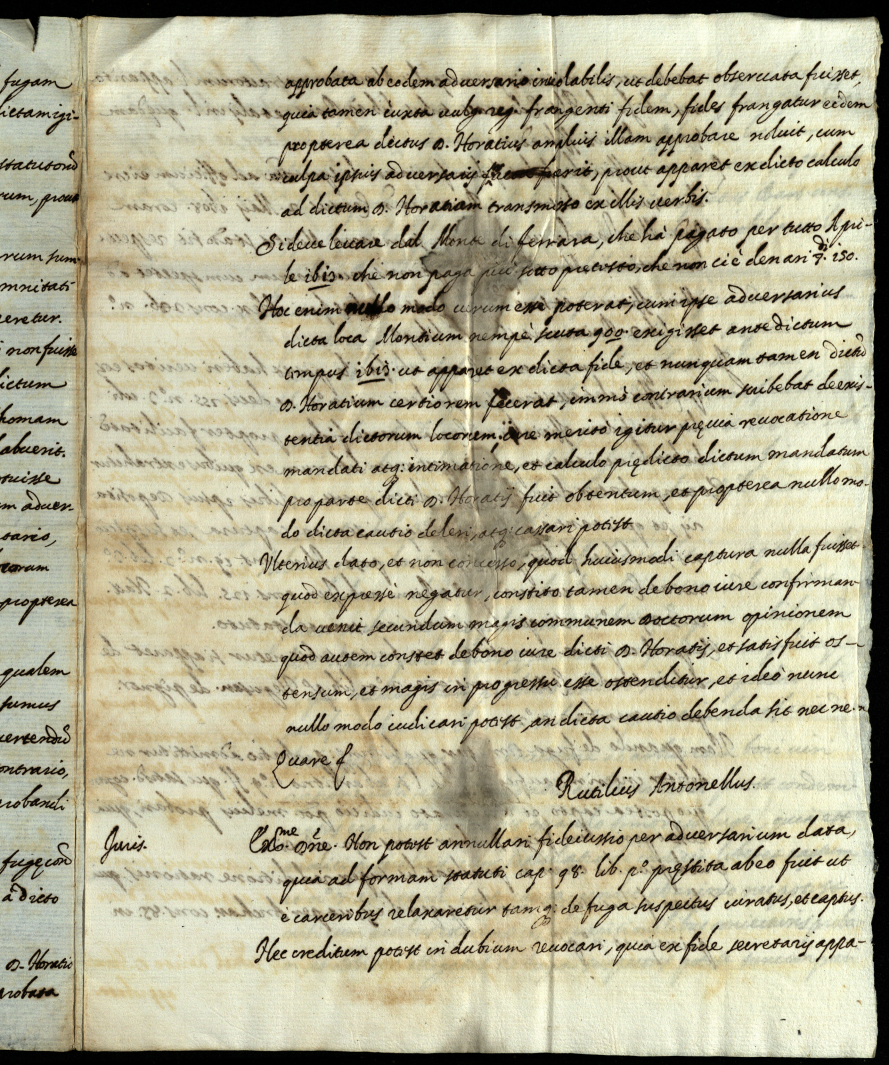 fugam
ictam igi-
statutorũ
rum, prout
rum sum
mnitati
eretur.
i non fuisse
ictum
homam
abuerit.
otuisse
m adver
tario,
orum
propterea
qualem
sumus
vertendũ
ontrario,
robandi
fugę con
a dicto
D. Horatio
robata
approbata ab eodem adversario inviolabilis, ut debebat observata fuisset,
quia tamen iuxta vulg. reg. frangenti fidem, fides frangatur eidem
propterea dictus D. Horatius amplius illam approbare noluit, cum
culpa ipsius adversarij fuerit, prout apparet ex dicto calculo
ad dictum D. Horatium transmisso ex illis verbis.
Si deve levare dal Monte di Ferrara, che hà pagato per tutto Apri-
le 1613. che non paga più sotto pretesto, che non ci è denari 150.
Hoc enim nullo modo verum esse poterat, cum ipse adversarius
dicta loca Montium nempè scuta 900. exigisset ante dictum
tempus 1613. ut apparet ex dicta fide, et nunquam tamen dictũ
D. Horatium certiorem fecerat, immò contrarium scribebat de exis-
tentia dictorum locorum, iure meritò igitur pręvia revocatione
mandati atq; intimatione, et calculo prędicto dictum mandatum
pro parte dicti D. Horatij fuit obtentum, et propterea nullo mo-
do dicta cautio deleri, atq; cassari potest
Ulterius dato, et non concesso, quod huiusmodi captura nulla fuisset
quod expressè negatur, constito tamen de bono iure confirman-
da venit secundum magis communem Doctorum opinionem
quod autem constet de bono iure dicti D. Horatij, et satis fuit os-
tensum, et magis in progressu esse ostenditur, et ideò nunc
nullo modo iudicari potest, an dicta cautio debenda sit nec ne.
Quare &
Rutilius Antonellus.
Juris.
Ex.me Dñe. Non potest annullari fideiussio per adversarium data,
quia ad formam statuti cap. 98. lib. p.o pręstita ab eo fuit ut
è carceribus relaxaretur tamq; de fuga suspectus iuratus, et captus.
Nec creditum potest in dubium revocari, quia ex fide secretarij appa-